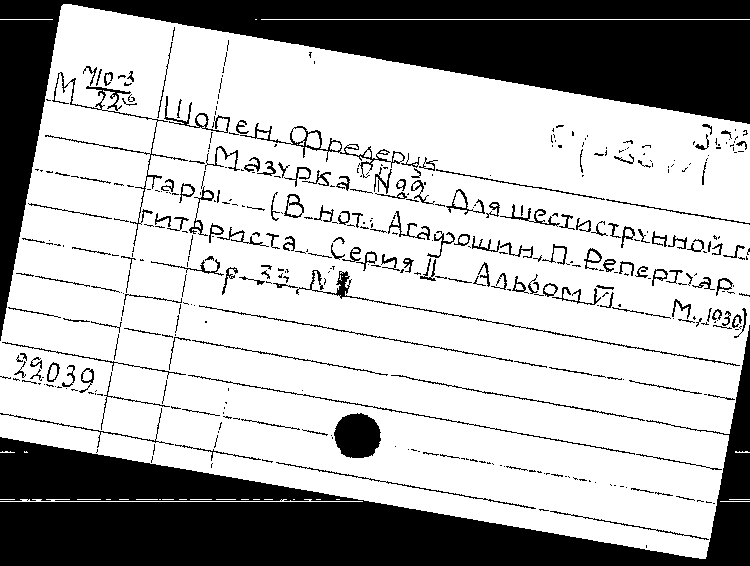 М 710-3
22
306
Шопен, Фредерик
Мазурка N22 Для шестиструнной ги
тары. (В нот.: Агафошин, П. Репертуар
гитариста Серия II Альбом VI. М., 1930)
Op. 33. N
22039